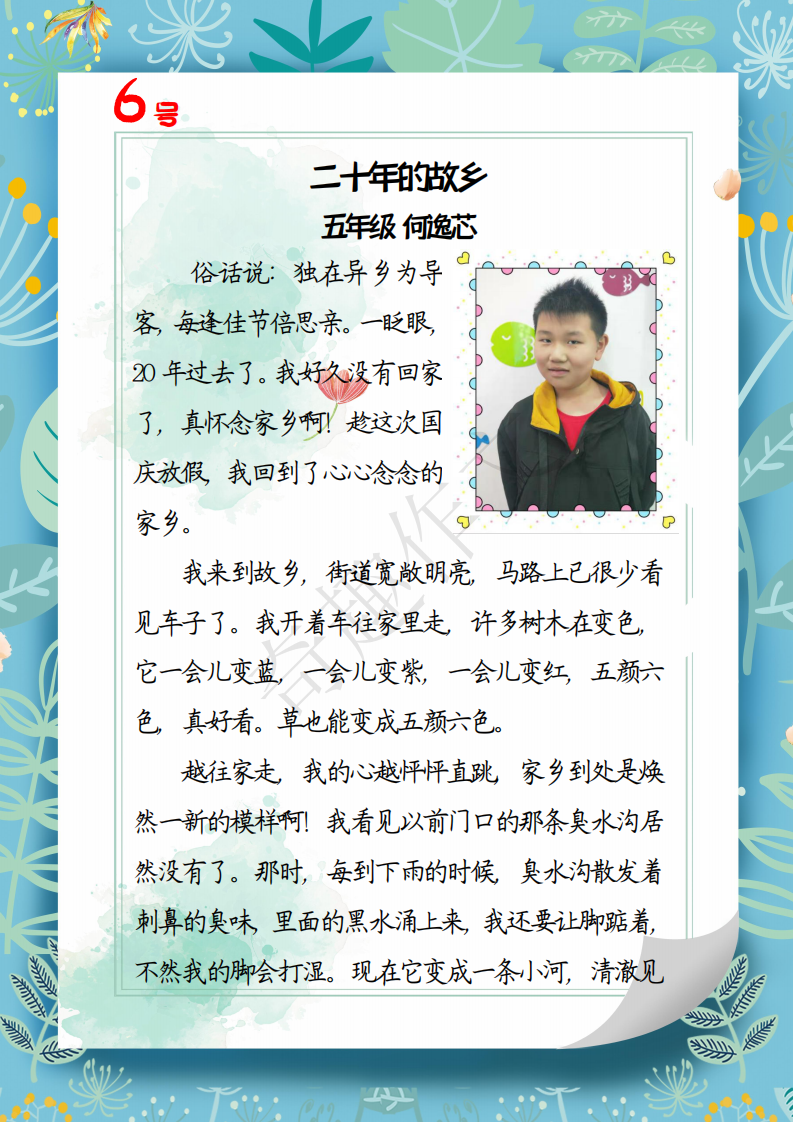 6号
二十年的故乡
五年级 何逸芯
俗话说：独在异乡为导
客，每逢佳节倍思亲。一眨眼，
20 年过去了。我好久没有回家
了，真怀念家乡啊！趁这次国
庆放假，我回到了心心念念的
家乡。
我来到故乡，街道宽敞明亮，马路上已很少看
见车子了。我开着车往家里走，许多树木在变色，
它一会儿变蓝，一会儿变紫，一会儿变红，五颜六
色，真好看。草也能变成五颜六色。
越往家走，我的心越怦怦直跳，家乡到处是焕
然一新的模样啊！我看见以前门口的那条臭水沟居
然没有了。那时，每到下雨的时候，臭水沟散发着
刺鼻的臭味，里面的黑水涌上来，我还要让脚踮着，
不然我的脚会打湿。现在它变成一条小河，清澈见
奇趣作